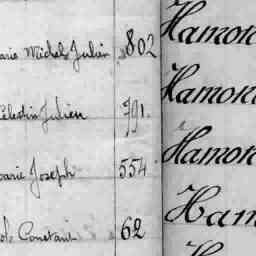 arie Michel Julien 802 Hamon
Célestin Julien 791. Hamon
Marie Joseph 554 Hamon
Constant 62 Ham